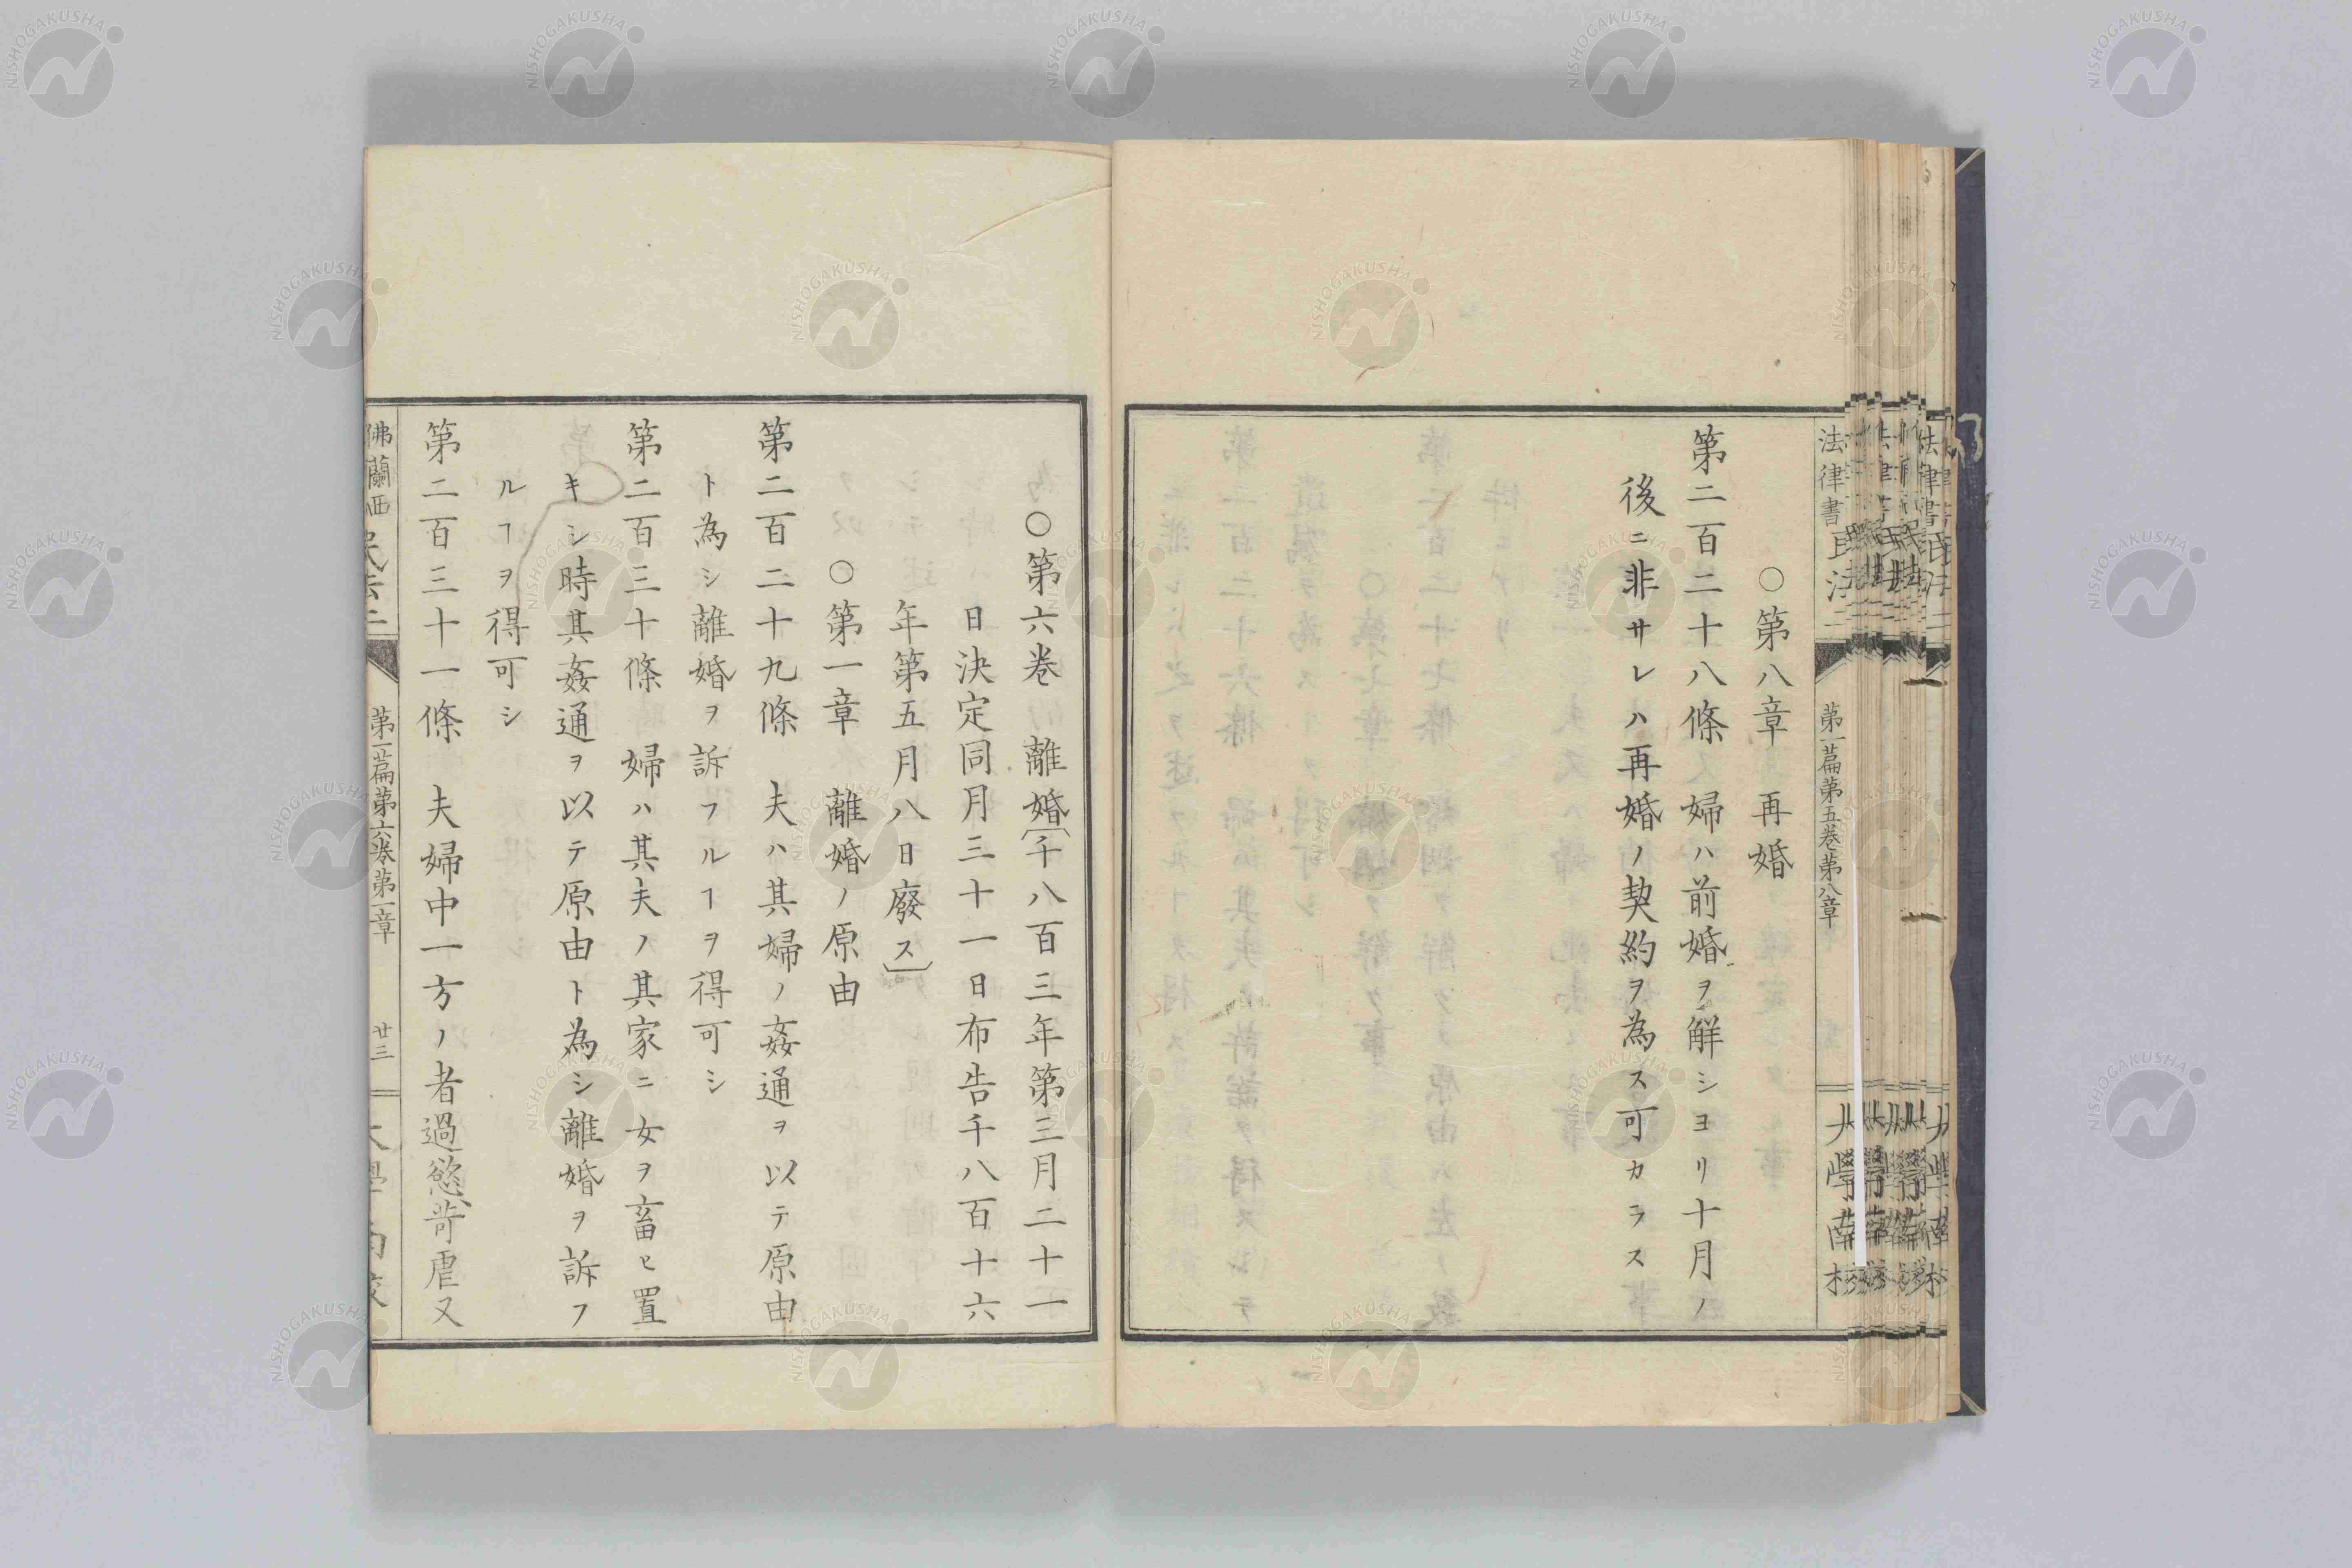 法律書
民法二
第一篇第五巻第八章
大學南校
○第八章 再婚
第二百二十八條 婦ハ前婚ヲ解シヨリ十月ノ
後ニ非サレハ再婚ノ契約ヲ為ス可カラス
○第六巻 離婚〔千八百三年第三月二十一
日決定同月三十一日布告千八百十六
年第五月八日廢ス〕
○第一章 離婚ノ原由
第二百二十九條 夫ハ其婦ノ姦通ヲ以テ原由
ト為シ離婚ヲ訴フルヿヲ得可シ
第二百三十條 婦ハ其夫ノ其家ニ女ヲ畜ヒ置
キシ時其姦通ヲ以テ原由ト為シ離婚ヲ訴フ
ルヿヲ得可シ
第二百三十一條 夫婦中一方ノ者過慾苛虐又
佛蘭西
民法二
第一篇第六巻第一章
廿三
大學南校
NISHOGAKUSHA